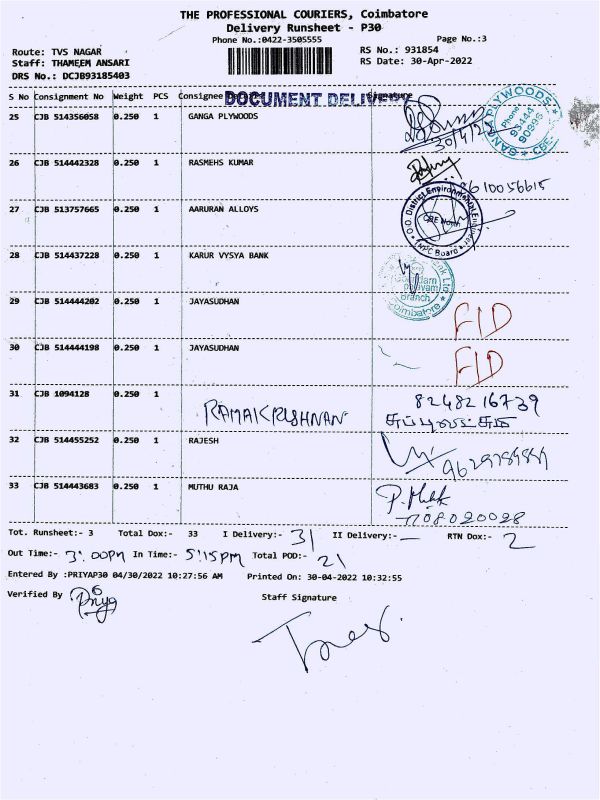 THE PROFESSIONAL COURIERS, Coimbatore
Delivery Runsheet - P30
Phone No.:0422-3505555 Page No.:3
Route: TVS NAGAR RS No.: 931854
Staff: THAMEEM ANSARI RS Date: 30-Apr-2022
DRS No.: DCJB93185403
S No Consignment No Weight PCS Consignee DOCUMENT DELIVERY Signature
25 CJB 514356058 0.250 1 GANGA PLYWOODS 30/4/22 PLYWOODS Phone: CBE
26 CJB 514442328 0.250 1 RASMEHS KUMAR 8610056615
27 CJB 513757665 0.250 1 AARURAN ALLOYS O/O. District Environmental Engineer CBE North TNPC Board
28 CJB 514437228 0.250 1 KARUR VYSYA BANK Branch Coimbatore
29 CJB 514444202 0.250 1 JAYASUDHAN FID
30 CJB 514444198 0.250 1 JAYASUDHAN FID
31 CJB 1094128 0.250 1 RAMAKRISHNAN 8248216739
32 CJB 514455252 0.250 1 RAJESH
33 CJB 514443683 0.250 1 MUTHU RAJA 7708020028
Tot. Runsheet:- 3 Total Dox:- 33 I Delivery:- 31 II Delivery:- — RTN Dox:- 2
Out Time:- 3:00PM In Time:- 5:15PM Total POD:- 21
Entered By :PRIYAP30 04/30/2022 10:27:56 AM Printed On: 30-04-2022 10:32:55
Verified By Priya Staff Signature